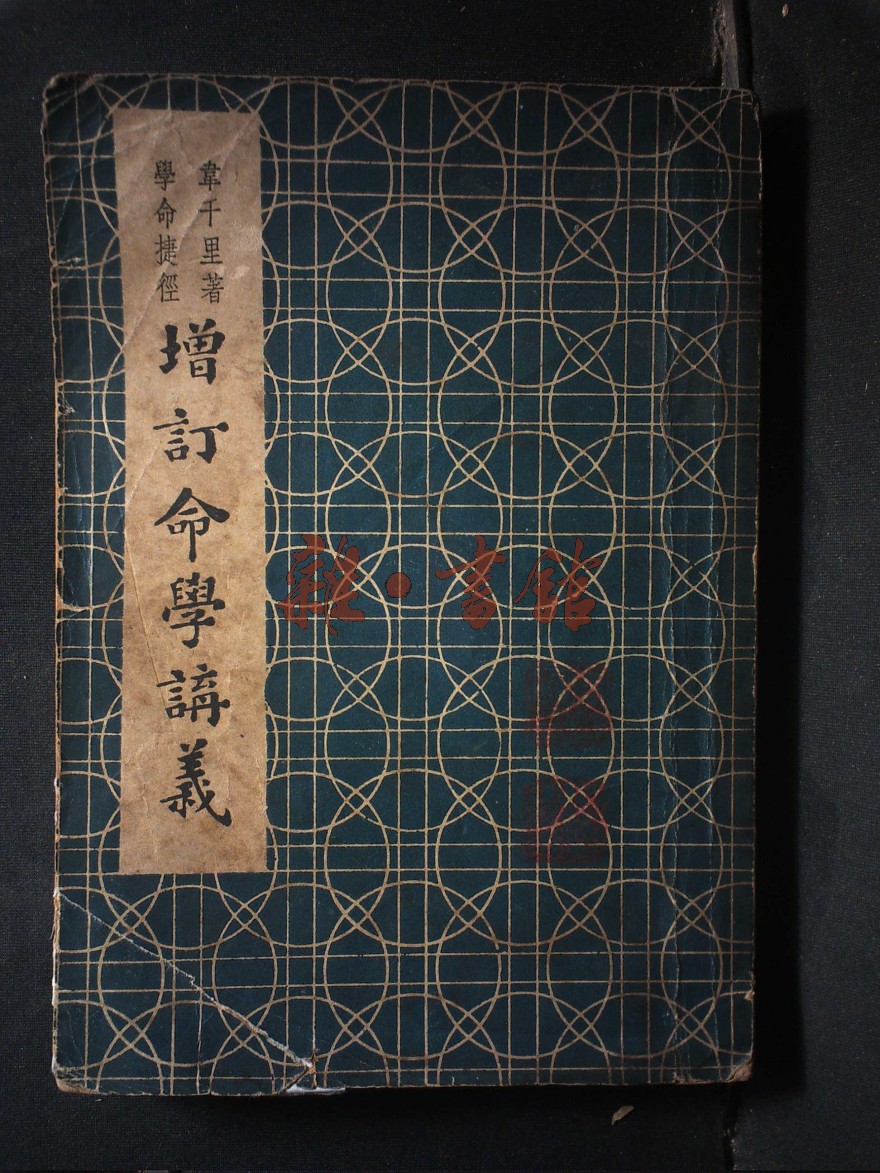 韋千里著
學命捷徑
增訂命學講義
雜·書館